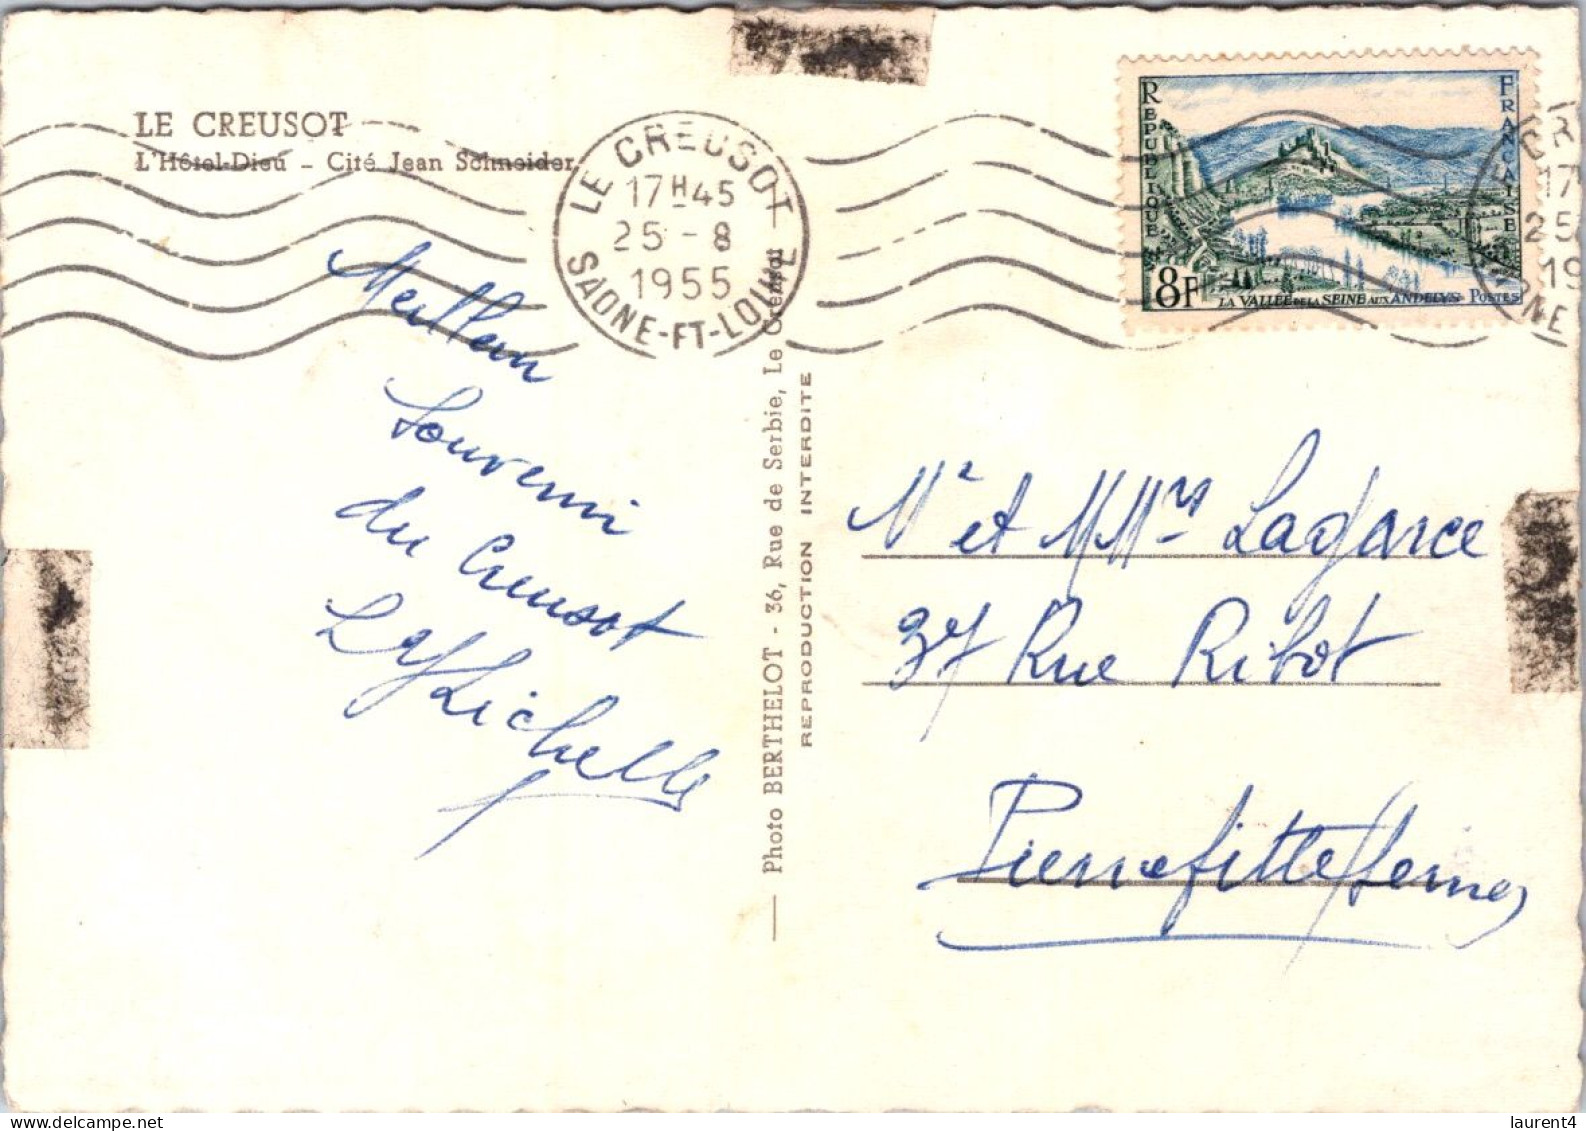 LE CREUSOT
L'Hôtel-Dieu - Cité Jean Schneider
LE CREUSOT
17H45
25-8
1955
SAONE-ET-LOIRE
RÉPUBLIQUE FRANÇAISE
8F
LA VALLÉE DE LA SEINE AUX ANDELYS POSTES
CR
17
25
19
Meilleur
Souvenir
du Creusot
Photo BERTHELOT - 36, Rue de Serbie, Le Creusot
REPRODUCTION INTERDITE
Mr et Lagarce
37 Rue Ribot
Pierrefitte
laurent4